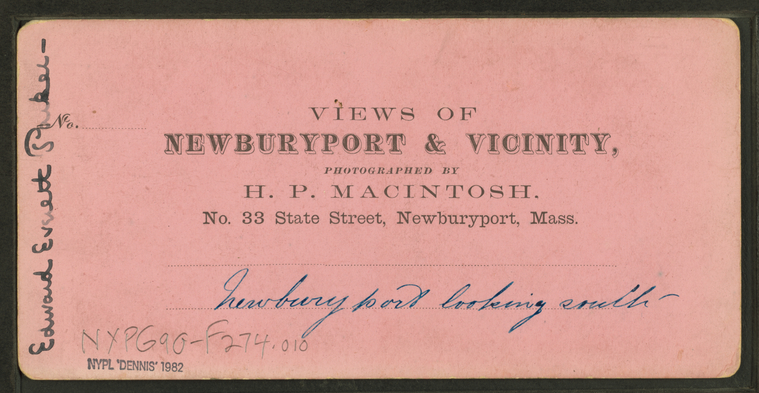 VIEWS OF
NEWBURYPORT & VICINITY,
PHOTOGRAPHED BY
H. P. MACINTOSH.
No. 33 State Street, Newburyport, Mass.
No.
Newburyport looking south
Edward Everett
NYPG90-F274.010
NYPL "DENNIS" 1982